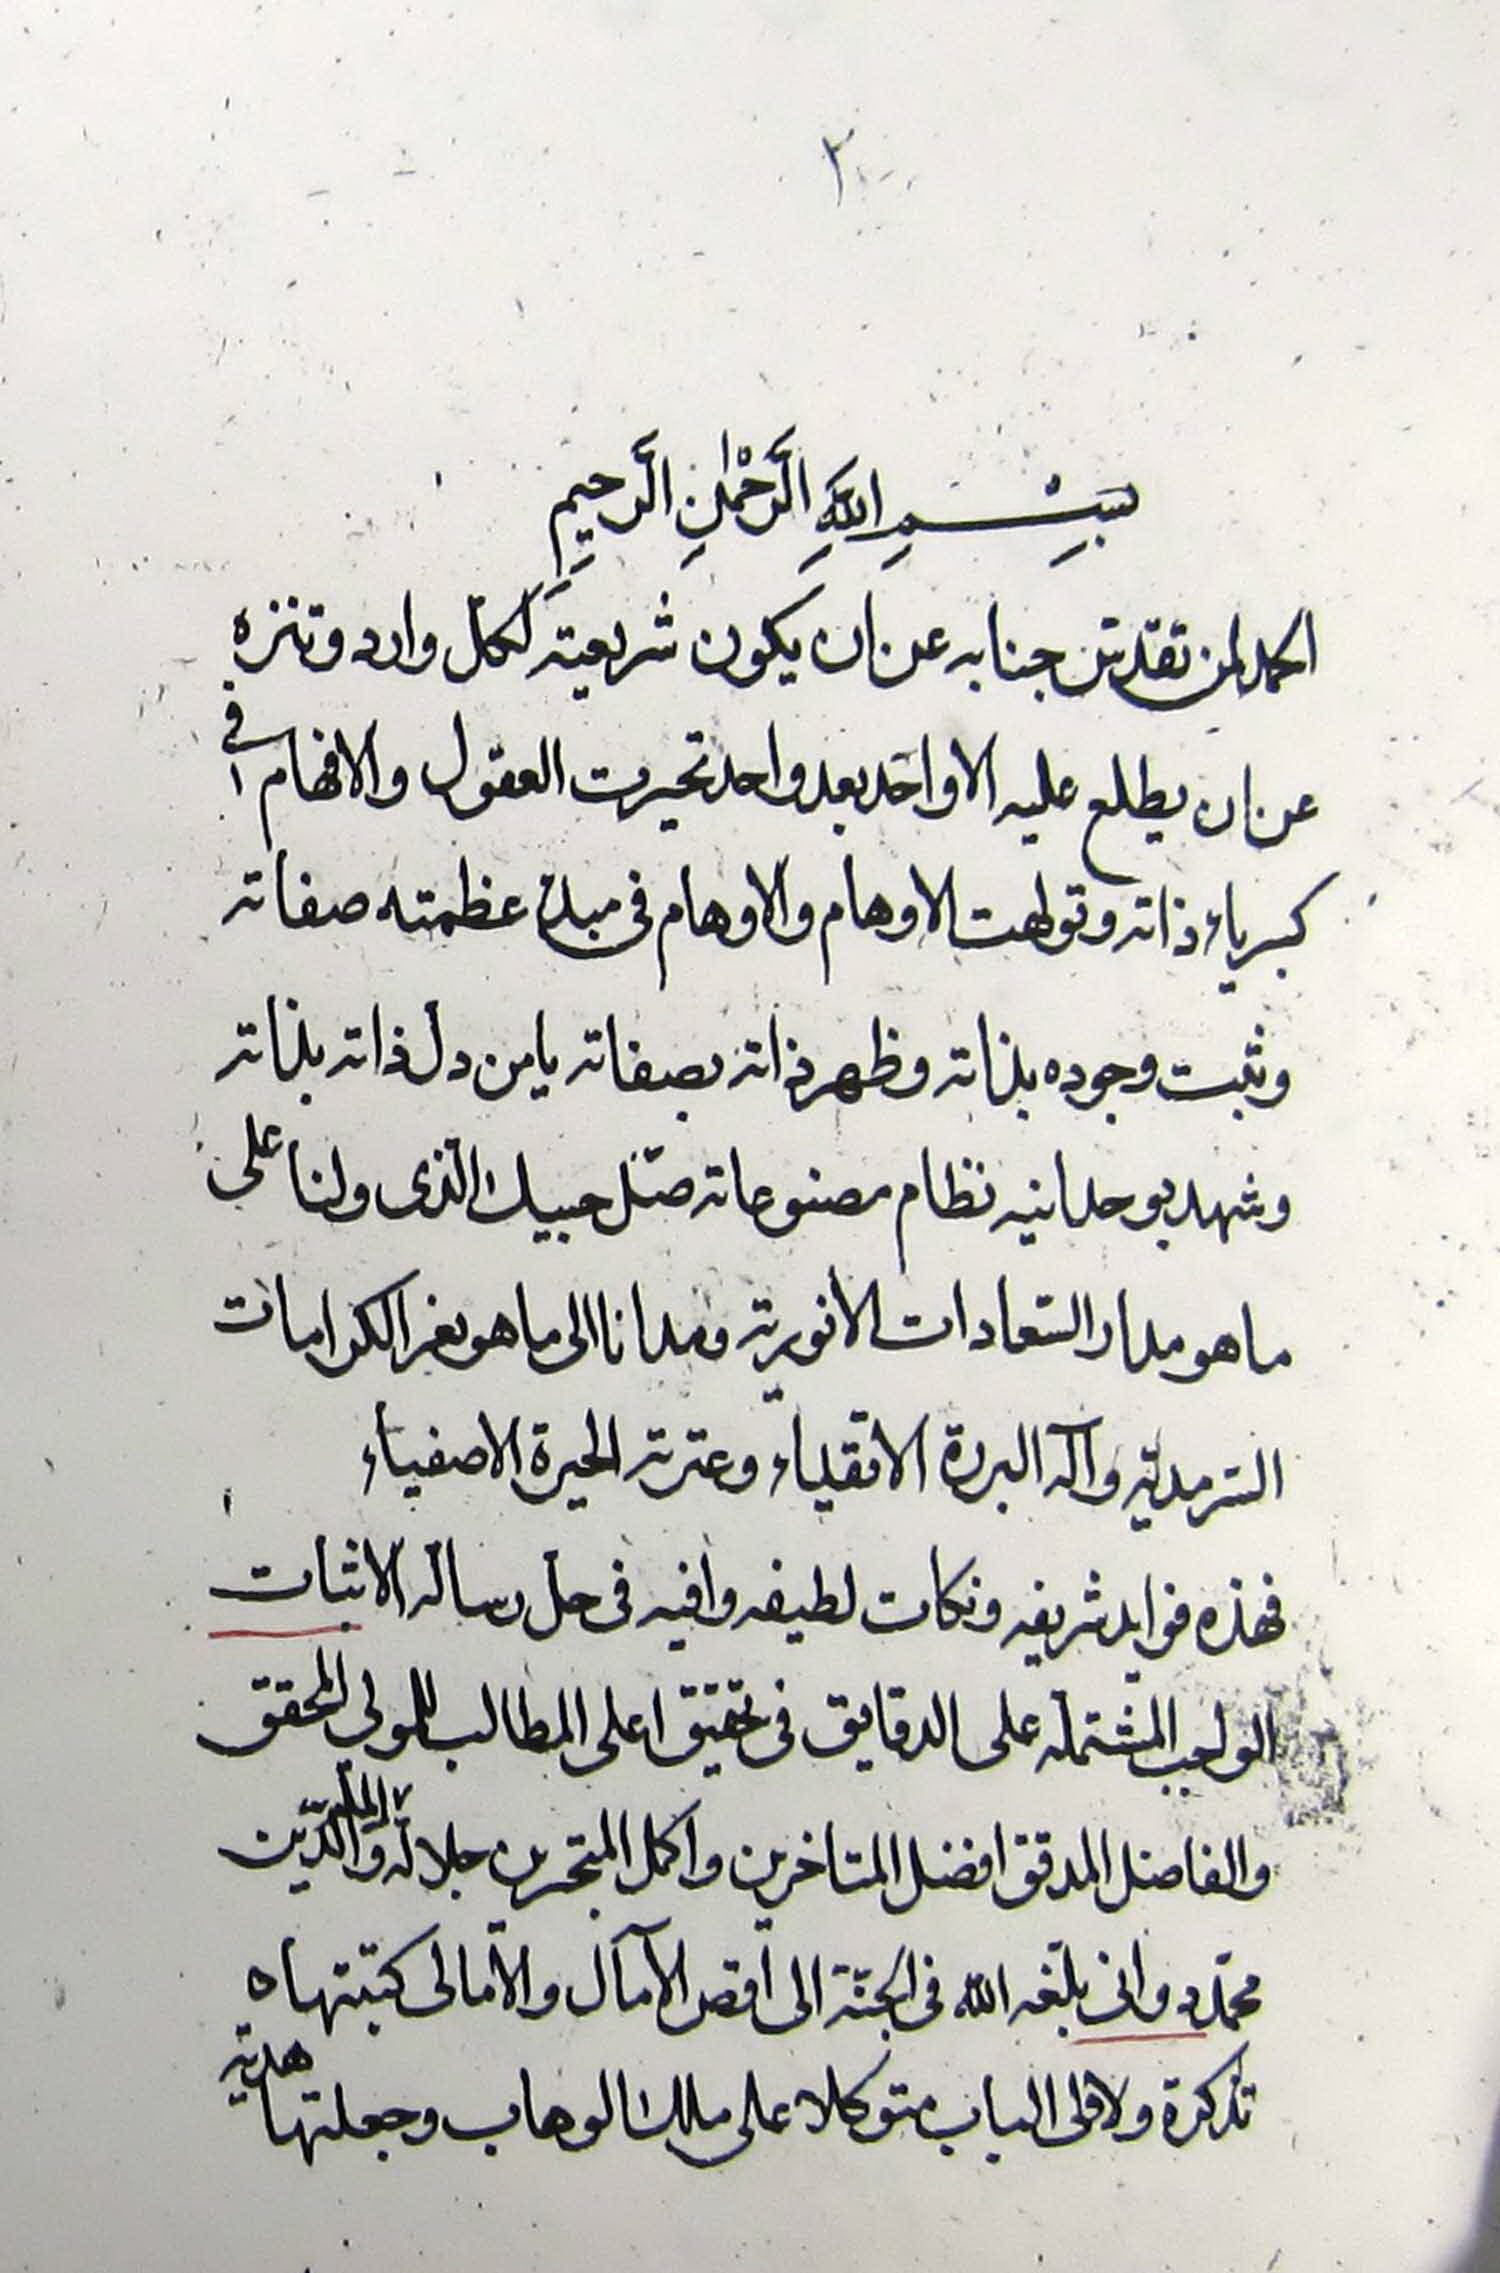 ٢
بسم الله الرحمن الرحيم
الحمد لمن تقدس جنابه عن ان يكون شريعة لكل وارد وتنزه
عن ان يطلع عليه الا واحد بعد واحد تحيرت العقول والافهام في
كبرياء ذاته وتولهت الاوهام والاوهام في عظمته صفاته
وثبت وجوده بذاته وظهر ذاته بصفاته يا من دل ذاته بذاته
وشهد بوحدانيه نظام مصنوعاته صل حبيبك الذى ولنا على
ما هو مدار السعادات الى ما هو الكرامات
السرمدية وآله البررة الاتقياء وعترته الخيرة الاصفياء
فهذه فوايد شريفه ونكات لطيفه وافيه فى حل رساله الاثبات
الواجب المشتمله على الدقايق فى تحقيق اعلى المطالب للمولى المحقق
والفاضل المدقق افضل المتاخرين واكمل المتبحرين جلال الملة والدين
محمد دوانى بلغه الله فى الجنة الى اقص الآمال والأمالى كتبتها
تذكرة ولاولى الباب متوكلا على ملك الوهاب وجعلتها هدية